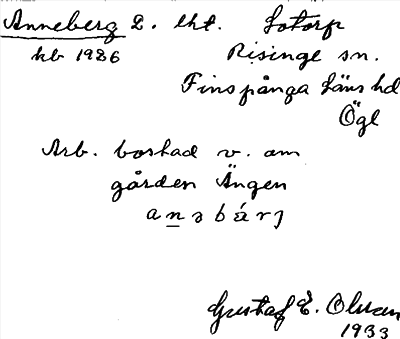 Anneberg 2. lht. Lotorp
kb 1926 Risinge sn.
Finspånga läns hd
Ögl
Arb. bostad v. om
gården Ängen
anəbárj
Gustaf E. Olsson
1933